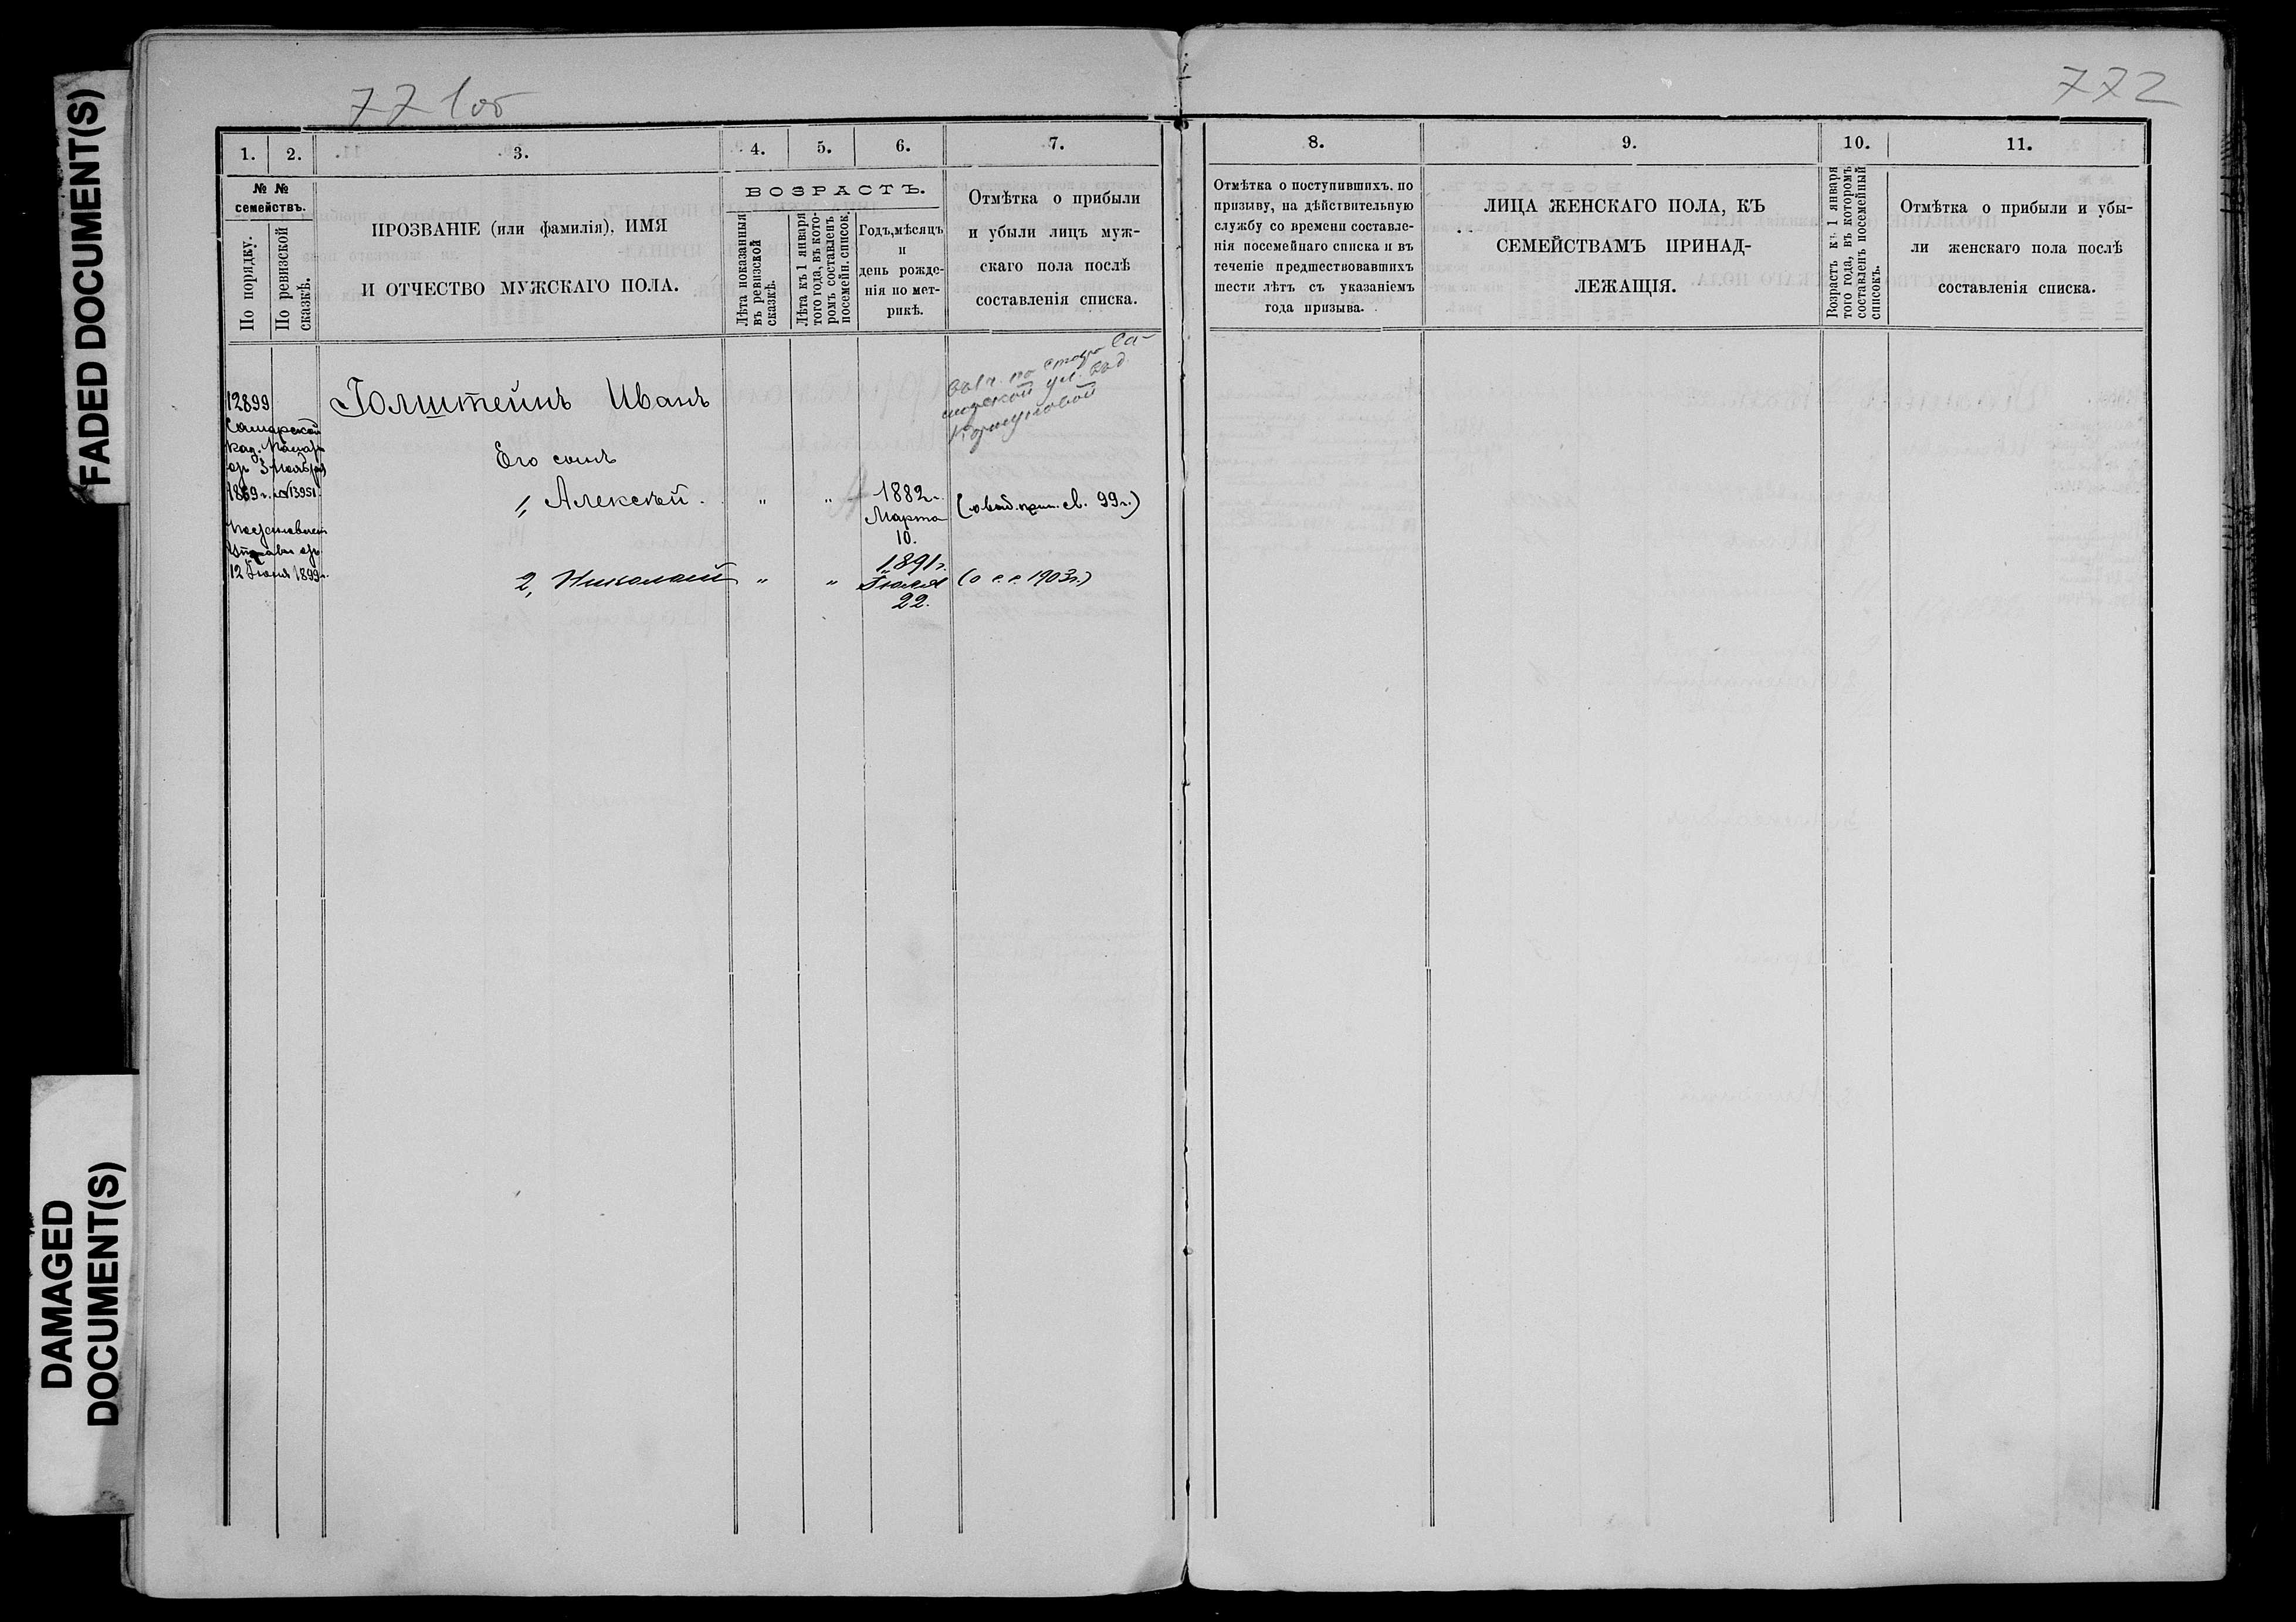 FADED DOCUMENT(S)
DAMAGED
DOCUMENT(S)
771об
1. 2. 3. 4. 5. 6. 7.
№ №
семействъ.
По порядку.
По ревизской
сказкѣ.
ПРОЗВАНІЕ (или фамилія), ИМЯ
И ОТЧЕСТВО МУЖСКАГО ПОЛА.
ВОЗРАСТЪ.
Лѣта показанныя
въ ревизской
сказкѣ.
Лѣта къ 1 января
того года, въ кото-
ромъ составленъ
посемейн. список.
Годъ, мѣсяцъ
и
день рожде-
нія по мет-
рикѣ.
Отмѣтка о прибыли
и убыли лицъ муж-
скаго пола послѣ
составленія списка.
12899
Самарской
Каз. Палаты
3 Ноября
1869 г. №13951.
12 Іюня 1899 г.
Голштейнъ Иванъ
Его сынъ
1, Алексѣй. " " 1882 г.
Марта
10.
св. 99 г.)
2, Николай " " 1891 г.
Іюля
22.
(о с. с. 1903 г.)
772
8. 9. 10. 11.
Отмѣтка о поступившихъ. по
призыву, на дѣйствительную
службу со времени составле-
нія посемейнаго списка и въ
теченіе предшествовавшихъ
шести лѣтъ съ указаніемъ
года призыва.
ЛИЦА ЖЕНСКАГО ПОЛА, КЪ
СЕМЕЙСТВАМЪ ПРИНАД-
ЛЕЖАЩІЯ.
Возрастъ къ 1 января
того года, въ которомъ
составленъ посемейный
списокъ.
Отмѣтка о прибыли и убы-
ли женскаго пола послѣ
составленія списка.